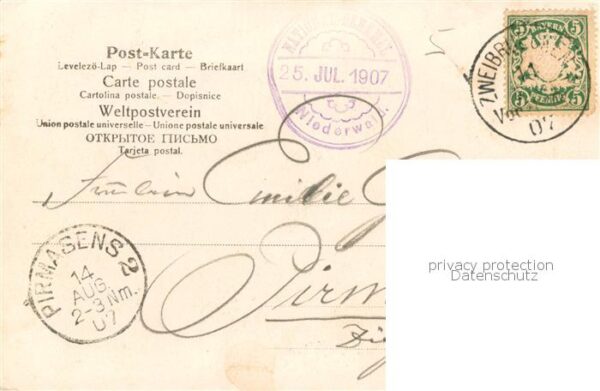 Post-Karte
Levelező-Lap — Post card — Briefkaart
Carte postale
Cartolina postale. — Dopisnice
Weltpostverein
Union postale universelle — Unione postale universale
ОТКРЫТОЕ ПИСЬМО
Tarjeta postal.
25. JUL. 1907
Niederwald.
BAYERN
5 5
PFENNIG
ZWEIBRÜCKEN
07
Fräulein Emilie
PIRMASENS 2
14
AUG
2-3 Nm.
07
Pirm
privacy protection
Datenschutz